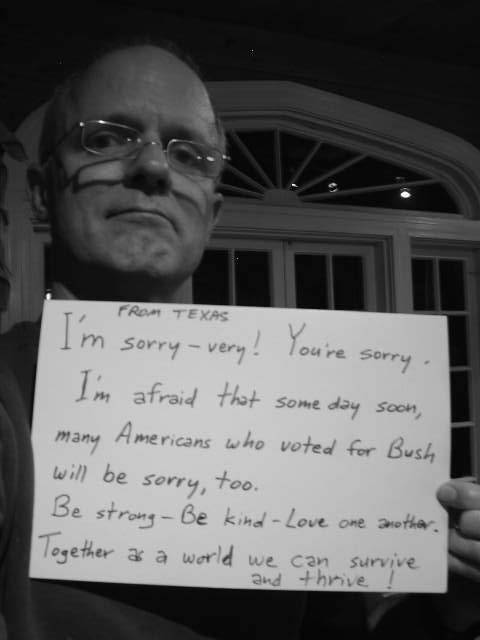 FROM TEXAS
I'm sorry - very! You're sorry.
I'm afraid that some day soon,
many Americans who voted for Bush
will be sorry, too.
Be strong - Be kind - Love one another.
Together as a world we can survive
and thrive!